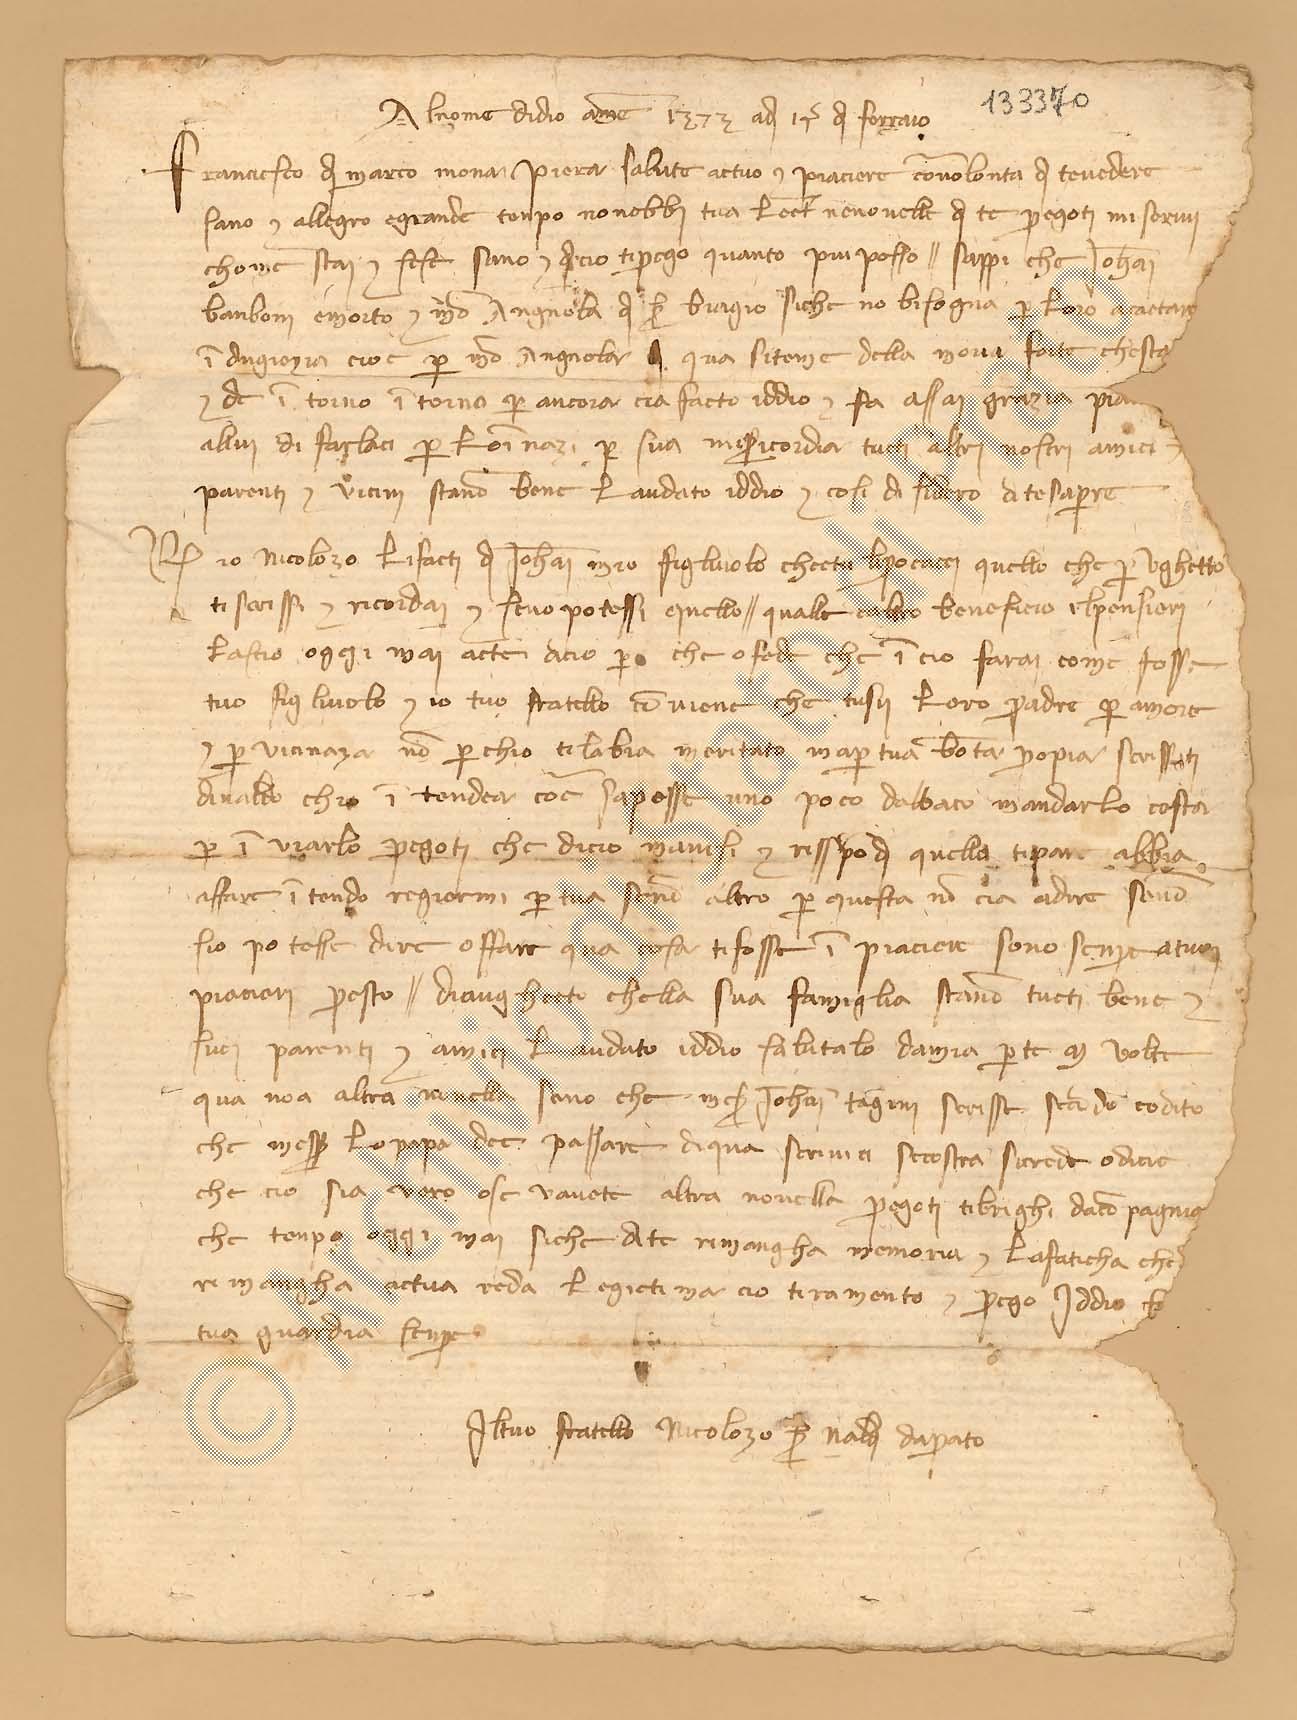 133370
Al nome di dio ame 1373 adi 15 di ferraio
Franciescho di marco mona piera salute actuo e piaciere con volonta di te vedere
sano e allegro e grande tenpo non ebbi tua lect ne novelle di te pregoti mi scrivi
chome stai e se se sano e di cio ti prego quanto piu posso // sappi che Johai
banboni e morto e mo Angnola di s biagio siche no bisogna p loro acactare
i dugienza cioe p mo Angnola qua si teme della moria forte che sta
e de i torno i torno p ancora cia facto iddio e fa assai grazia
allui di farlaci p lo inazi p sua misericordia tucti altri nostri amici e
parenti e vicini stano bene laudato iddio e cosi disidero di te sapere
io Nicolozo li facti di Johai mio figliuolo che ctu li procacci quello che p Ughetto
ti scrissi e ricordai e se uopo tessi quello // qualle benificio il pensieri
lascio oggi mai acte di cio p che o fede che i cio farai come fosse
tuo figliuolo e io tuo fratello coviene che tu sii loro padre p amore
e p vicinaza no p chio te labia meritato ma p tua bonta propia scrissiti
di vallo chio i tendea coe sapesse uno poco dallaco mandarlo costa
p i viarlo pregoti che di cio mavisi e rispodi quello ti pare abbia
affare i tendo regiermi p tua seno altro p questa no cia a dire seno
sio potesse dire o ffare qua cosa ti fosse i piaciere sono senpre a tuoi
piacieri presto // di a ughecto che lla sua famiglia stano tucti bene e
suoi parenti e amici laudato iddio salutalo da mia parte M volte
qua no a altra novella seno che mess Johai tagini scrisse secodo co dito
che mess lo papa dee passare di qua scrivici se costa si crede o dicie
che cio sia vero o se vavete altra novella pregoti ti brighi dacopagnia
che tenpo oggi mai siche di te rimangha memoria e la faticha che
rimangha actua reda legictima cio ti ramento e prego Iddio
tua guardia senpre
Il tuo fratello Nicolozo s Naldi da prato
© Archivio di Stato di Prato